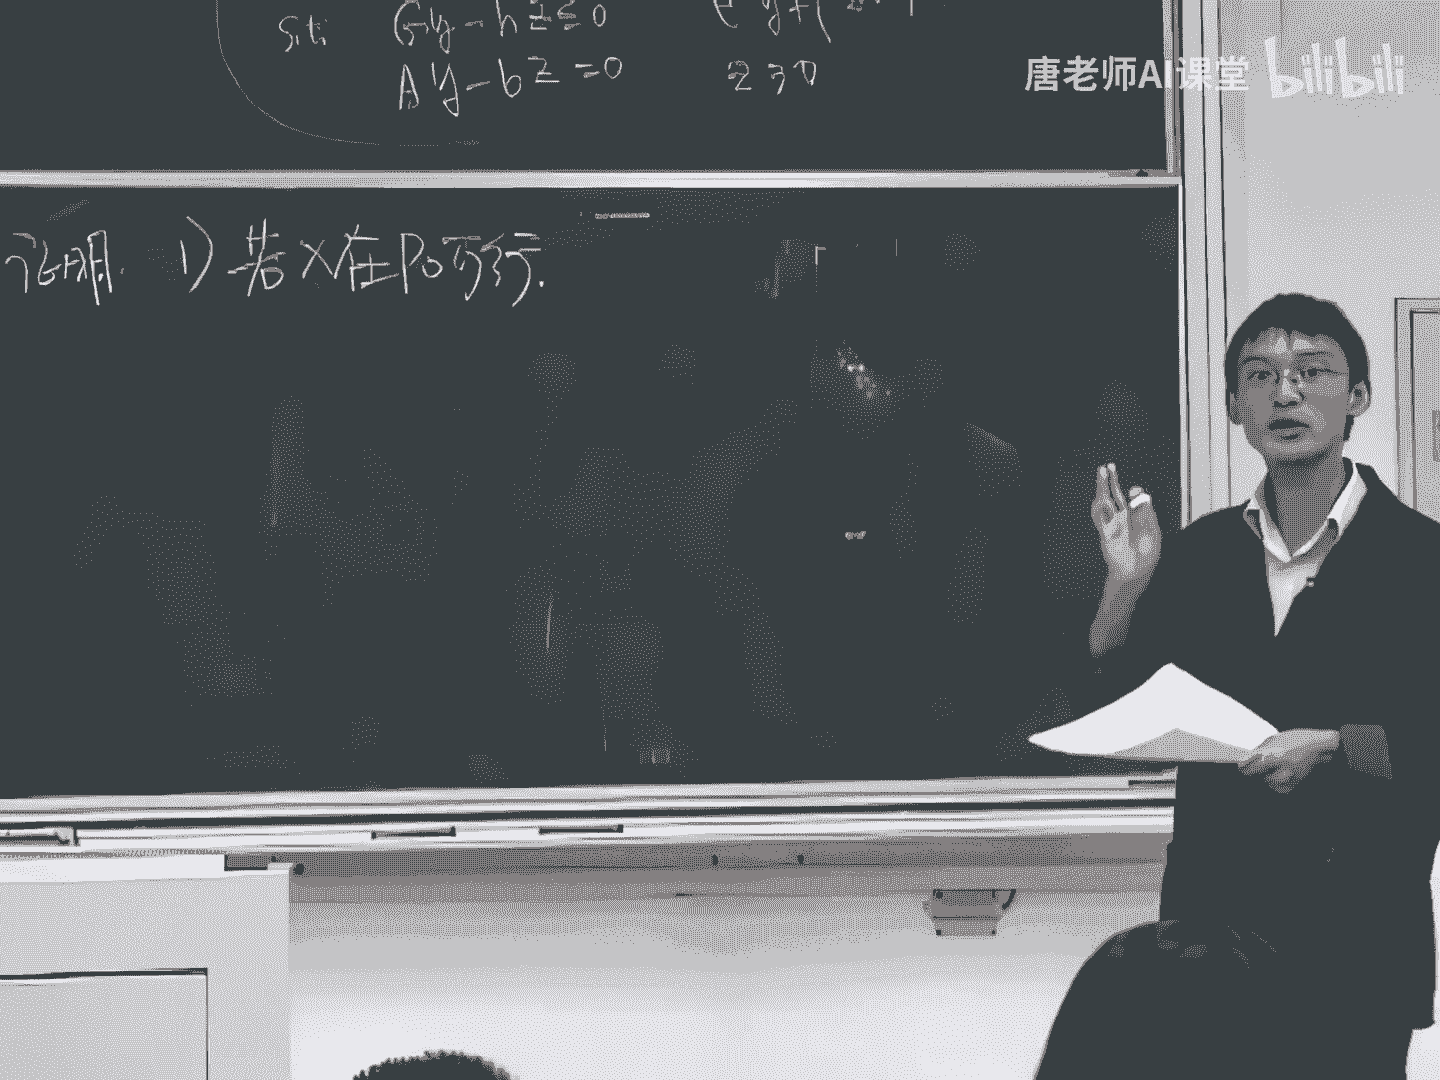 s.t. Gy-hz≤0
Ay-bz=0 z≥0
唐老师AI课堂 bilibili
证明. 1) 若x在P0可行.